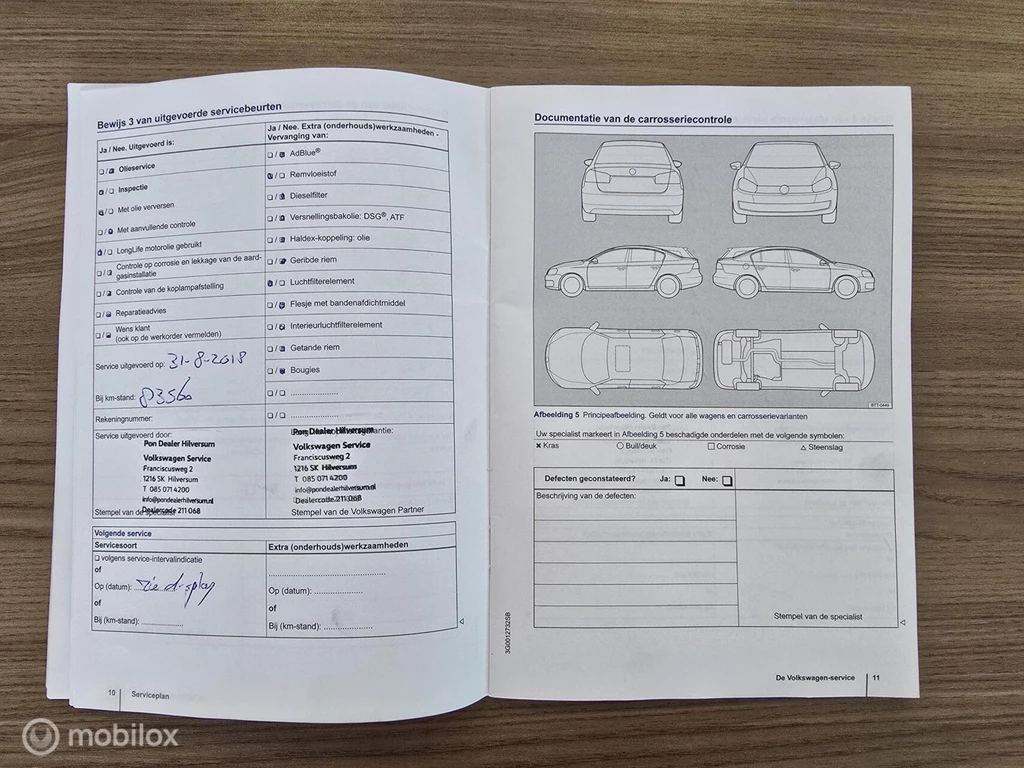 Bewijs 3 van uitgevoerde servicebeurten
Ja / Nee. Uitgevoerd is:
❏ / ❏ Olieservice
❏ / ❏ Inspectie
❏ / ❏ Met olie verversen
❏ / ❏ Met aanvullende controle
❏ / ❏ LongLife motorolie gebruikt
❏ / ❏ Controle op corrosie en lekkage van de aard-
gasinstallatie
❏ / ❏ Controle van de koplampafstelling
❏ / ❏ Reparatieadvies
❏ / ❏ Wens klant
(ook op de werkorder vermelden)
Service uitgevoerd op: 31-8-2018
Bij km-stand: 83560
Rekeningnummer:
Service uitgevoerd door:
Pon Dealer Hilversum
Volkswagen Service
Franciscusweg 2
1216 SK Hilversum
T 085 071 4200
info@pondealerhilversum.nl
Dealercode 211 068
Stempel van de specialist
Ja / Nee. Extra (onderhouds)werkzaamheden -
Vervanging van:
❏ / ❏ AdBlue®
❏ / ❏ Remvloeistof
❏ / ❏ Dieselfilter
❏ / ❏ Versnellingsbakolie: DSG®, ATF
❏ / ❏ Haldex-koppeling: olie
❏ / ❏ Geribde riem
❏ / ❏ Luchtfilterelement
❏ / ❏ Flesje met bandenafdichtmiddel
❏ / ❏ Interieurluchtfilterelement
❏ / ❏ Getande riem
❏ / ❏ Bougies
❏ / ❏ ....................
❏ / ❏ ....................
Pon Dealer Hilversum
Volkswagen Service
Franciscusweg 2
1216 SK Hilversum
T 085 071 4200
info@pondealerhilversum.nl
Dealercode 211 068
Stempel van de Volkswagen Partner
Volgende service
Servicesoort
❏ volgens service-intervalindicatie
of
Op (datum): zie display
of
Bij (km-stand): ................
Extra (onderhouds)werkzaamheden
........................................
Op (datum): ................
of
Bij (km-stand): ................
10 Serviceplan
Documentatie van de carrosseriecontrole
B7T-0449
Afbeelding 5 Principeafbeelding. Geldt voor alle wagens en carrosserievarianten
Uw specialist markeert in Afbeelding 5 beschadigde onderdelen met de volgende symbolen:
✖ Kras ○ Buil/deuk □ Corrosie △ Steenslag
Defecten geconstateerd? Ja: ❏ Nee: ❏
Beschrijving van de defecten:
Stempel van de specialist
3G0012732SB
De Volkswagen-service 11
mobilox